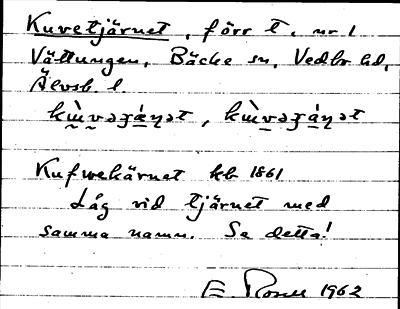 Kuvetjärnet, förr t. nr 1
Vättungen, Bäcke sn, Vedbo hd,
Älvsb. l.
kɯ̀vəʒǽṇət, kɯ̀vəʒáṇət
Kufwekärnet kb 1861
Låg vid tjärnet med
samma namn. Se detta!
E. 1962